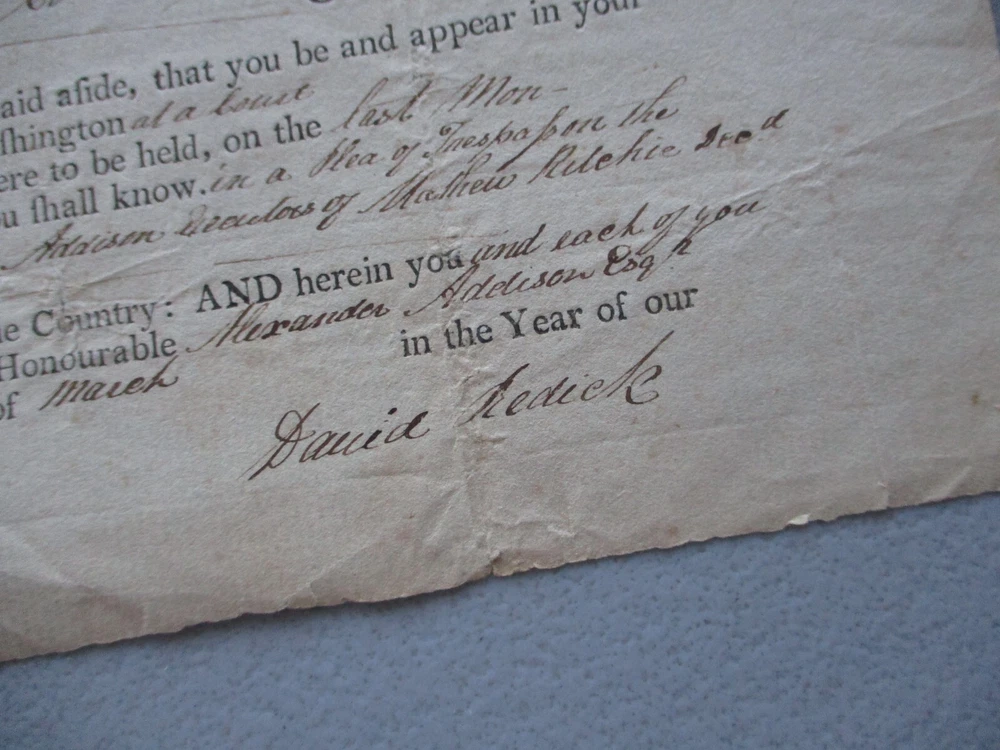 aid aſide, that you be and appear in your
ſhington at a Court
ere to be held, on the last Mon-
u ſhall know. in a Plea of Trespaſs on the
Addison Executors of Mathew Ritchie Decd
he Country: AND herein you and each of you
Honourable Alexander Addison Esqr
of March in the Year of our
David Redick